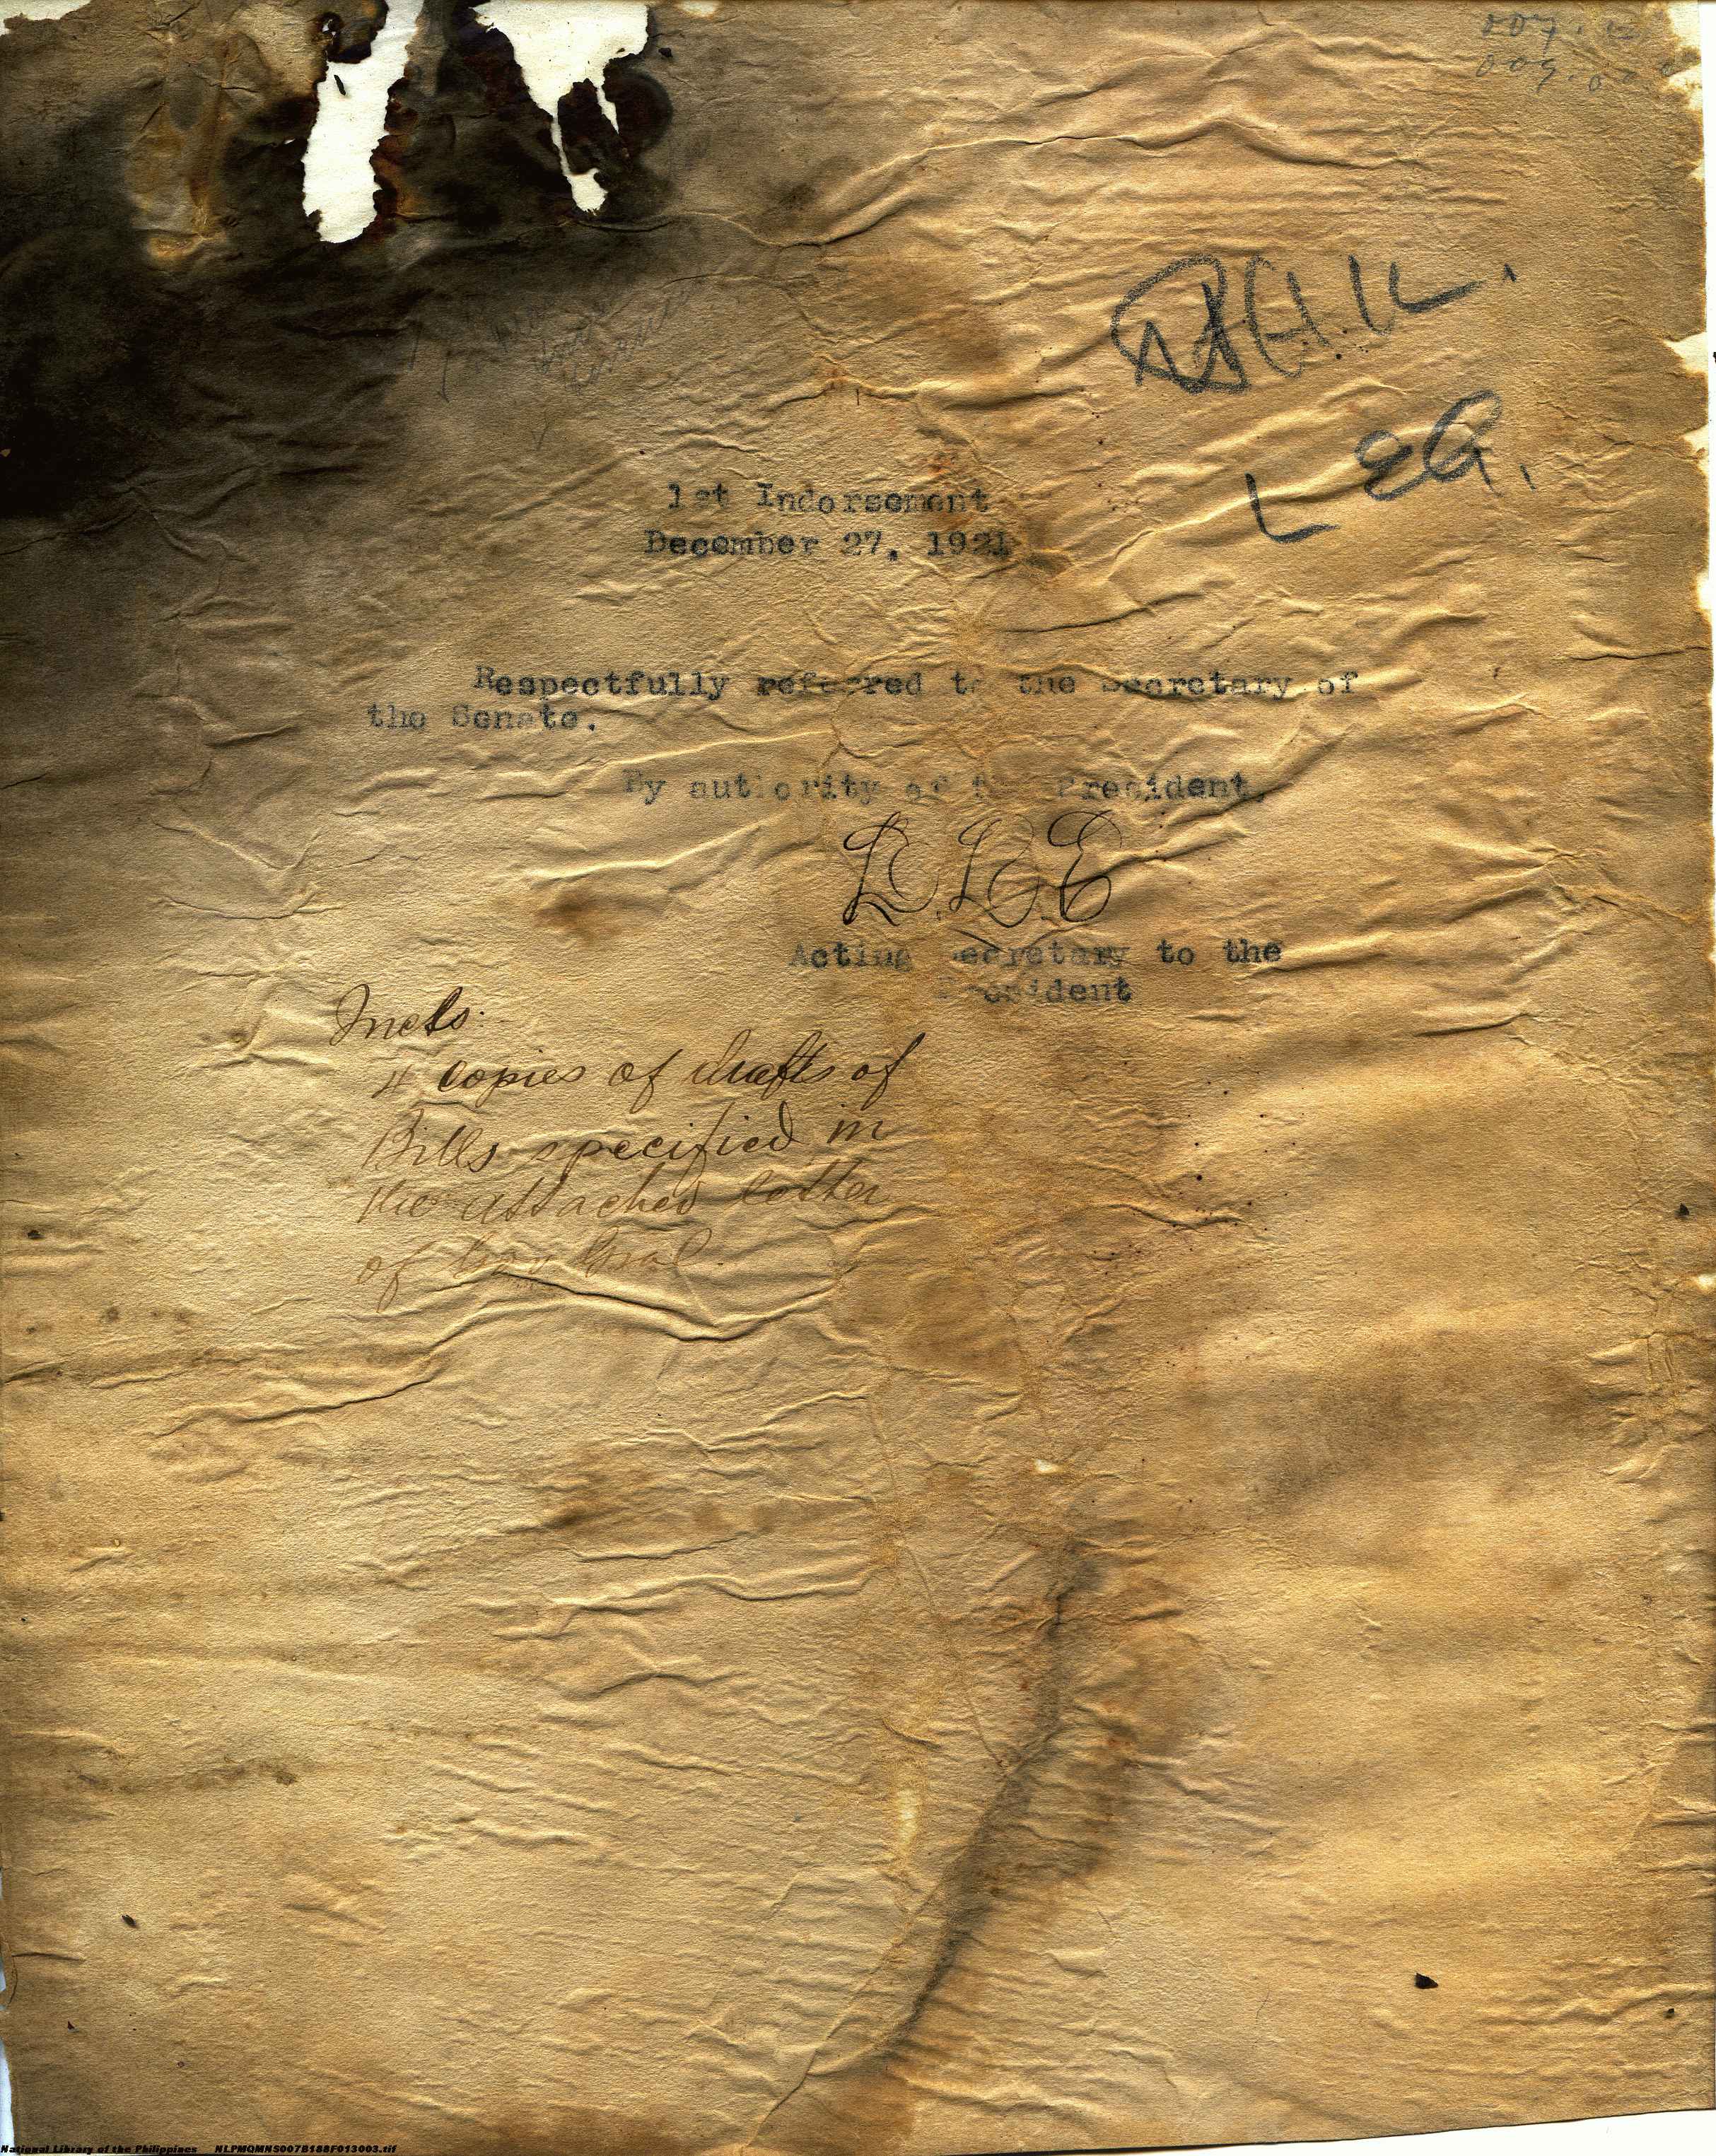 1st Indorsement
December 27, 1921
Respectfully referred to the Secretary of
the Senate.
By authority of the President,
Acting Secretary to the
President
Incls.
4 copies of drafts of
Bills specified in
the attached letter
of Gov Gral.
National Library of the Philippines NLPMQMNS007B188F013003.tif